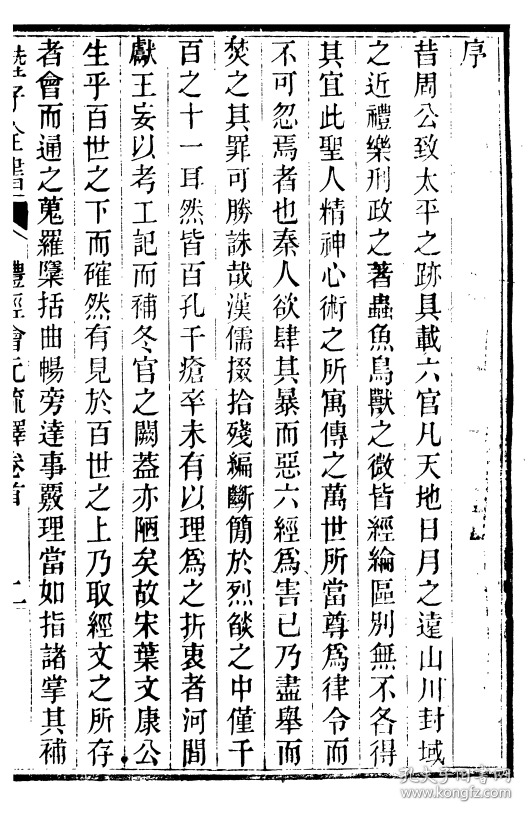 序
昔周公致太平之跡具載六官凡天地日月之遠山川封域
之近禮樂刑政之著蟲魚鳥獸之微皆經綸區別無不各得
其宜此聖人精神心術之所寓傳之萬世所當尊爲律令而
不可忽焉者也秦人欲肆其暴而惡六經爲害已乃盡舉而
焚之其罪可勝誅哉漢儒掇拾殘編斷簡於烈燄之中僅千
百之十一耳然皆百孔千瘡卒未有以理爲之折衷者河間
獻王妄以考工記而補冬官之闕蓋亦陋矣故宋葉文康公
生乎百世之下而確然有見於百世之上乃取經文之所存
者會而通之蒐羅檃括曲暢旁達事覈理當如指諸掌其補
禮經會元疏釋卷首 二
孔夫子舊書网
kongfz.com